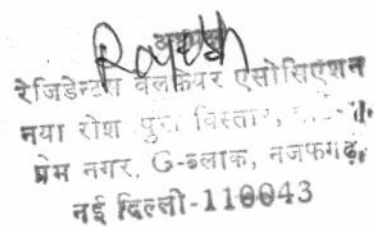 Rajesh
अध्यक्ष
रेजिडेन्टस वेलफेयर एसोसिएशन
नया रोश पुरा विस्तार,
प्रेम नगर, G-ब्लाक, नजफगढ़,
नई दिल्ली-110043